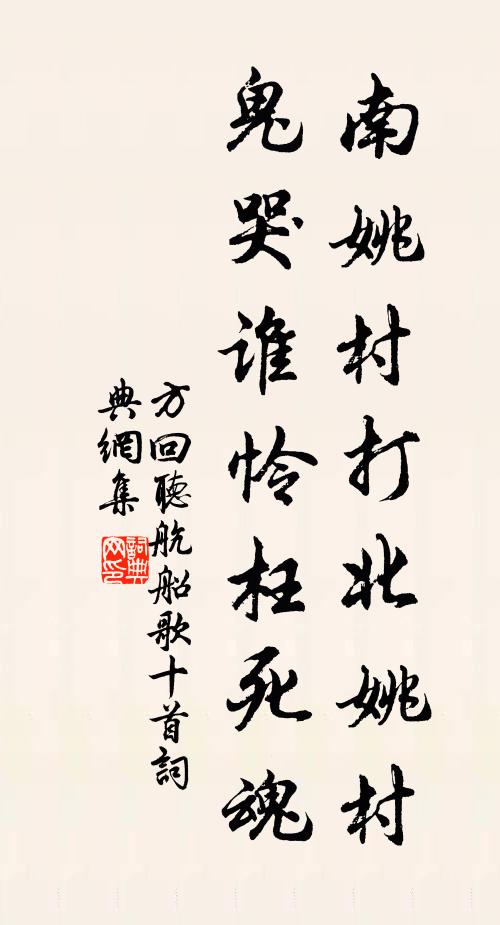 南姚村打北姚村
鬼哭谁怜枉死魂
方回聽航船歌十首詞
典網集
詞典
网印